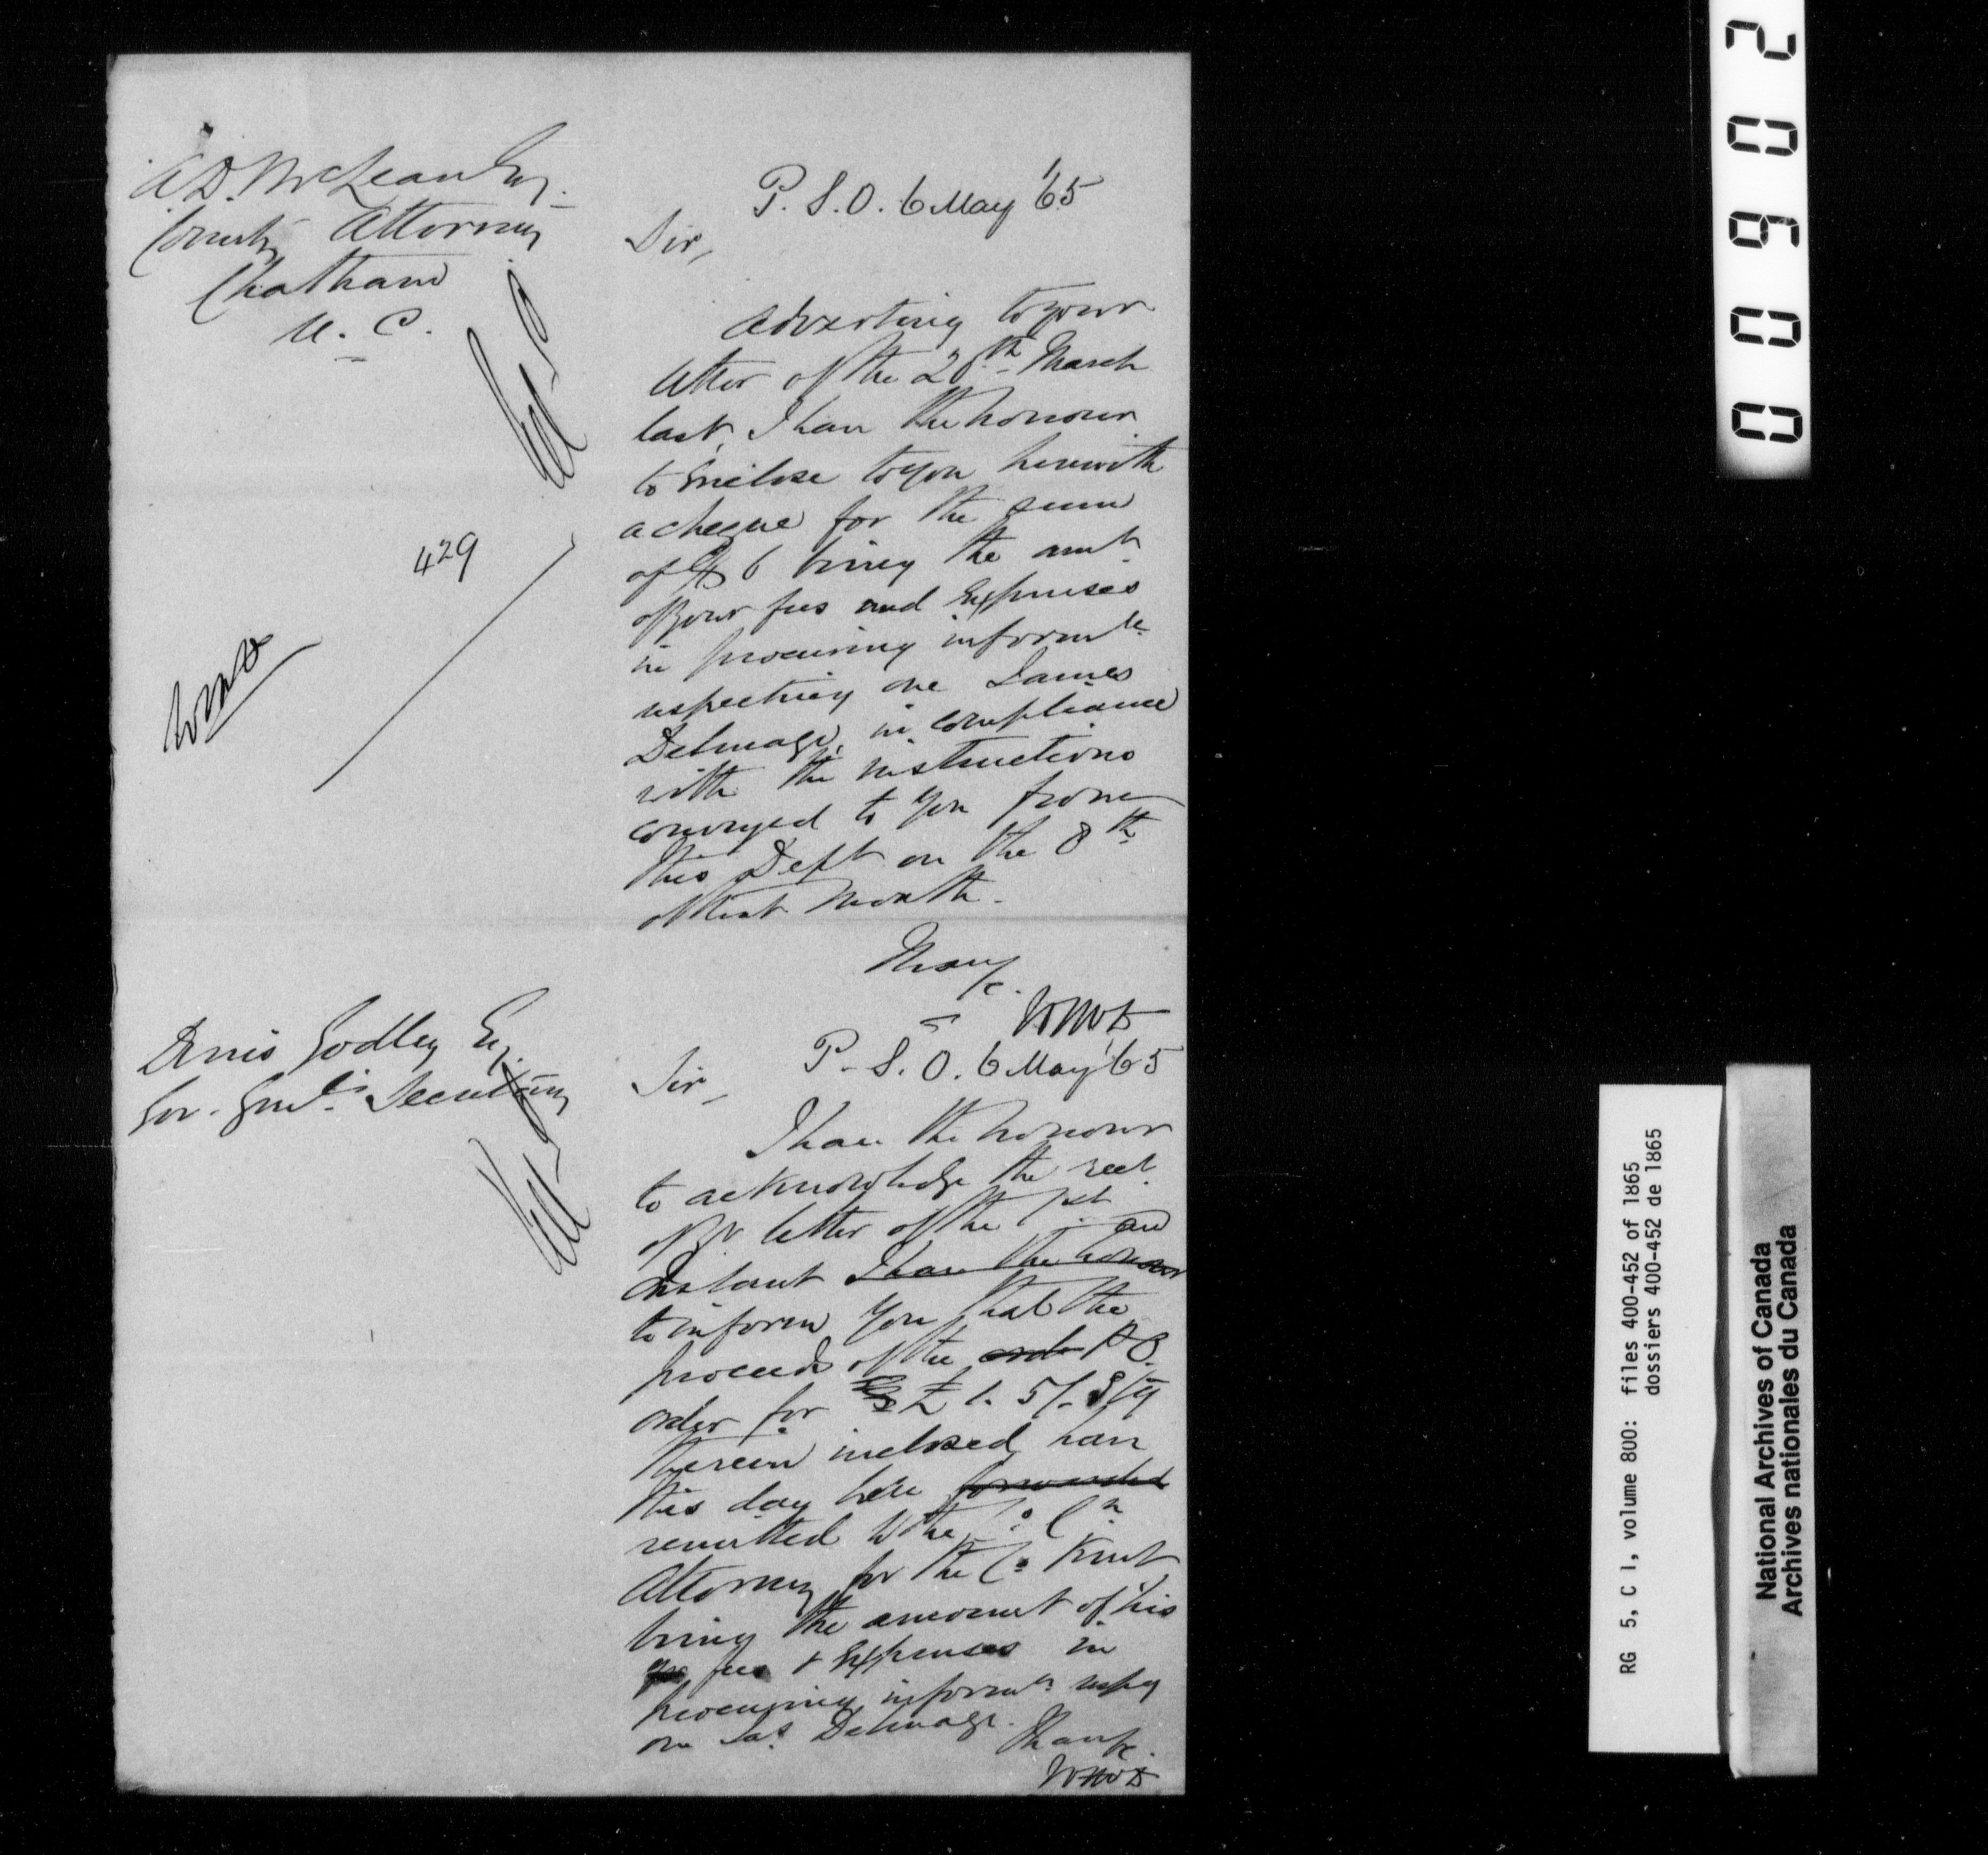 A. D. McLean Esq.
County Attorney
Chatham
U. C.
429
P. S. O. 6 May '65
Sir,
Adverting to your
letter of the 28th March
last, I have the honour
to Enclose to you herewith
a cheque for the sum
of $6 being the amt
of your fees and Expenses
in procuring informtn
respecting one James
Delmage, in compliance
with the instructions
conveyed to you from
this Dept on the 8th
of that month.
I have &c.
WMD
Denis Godley Esq.
Gov. Genl's Secretary
P. S. O. 6 May '65
Sir,
I have the honour
to acknowledge the rect
of yr letter of the 1st
Instant I have the honour and
to inform you that the
proceeds of the order P.O.
order for £1. 5/- Stg
therein inclosed have
this day been forwarded
remitted to the Co. Cn
Attorney for the Co. Kent
being the amount of his
fees & Expenses in
procuring informtn respg
one Jas Delmage.
I have &c.
WMD
00902
RG 5, C 1, volume 800: files 400-452 of 1865
dossiers 400-452 de 1865
National Archives of Canada
Archives nationales du Canada